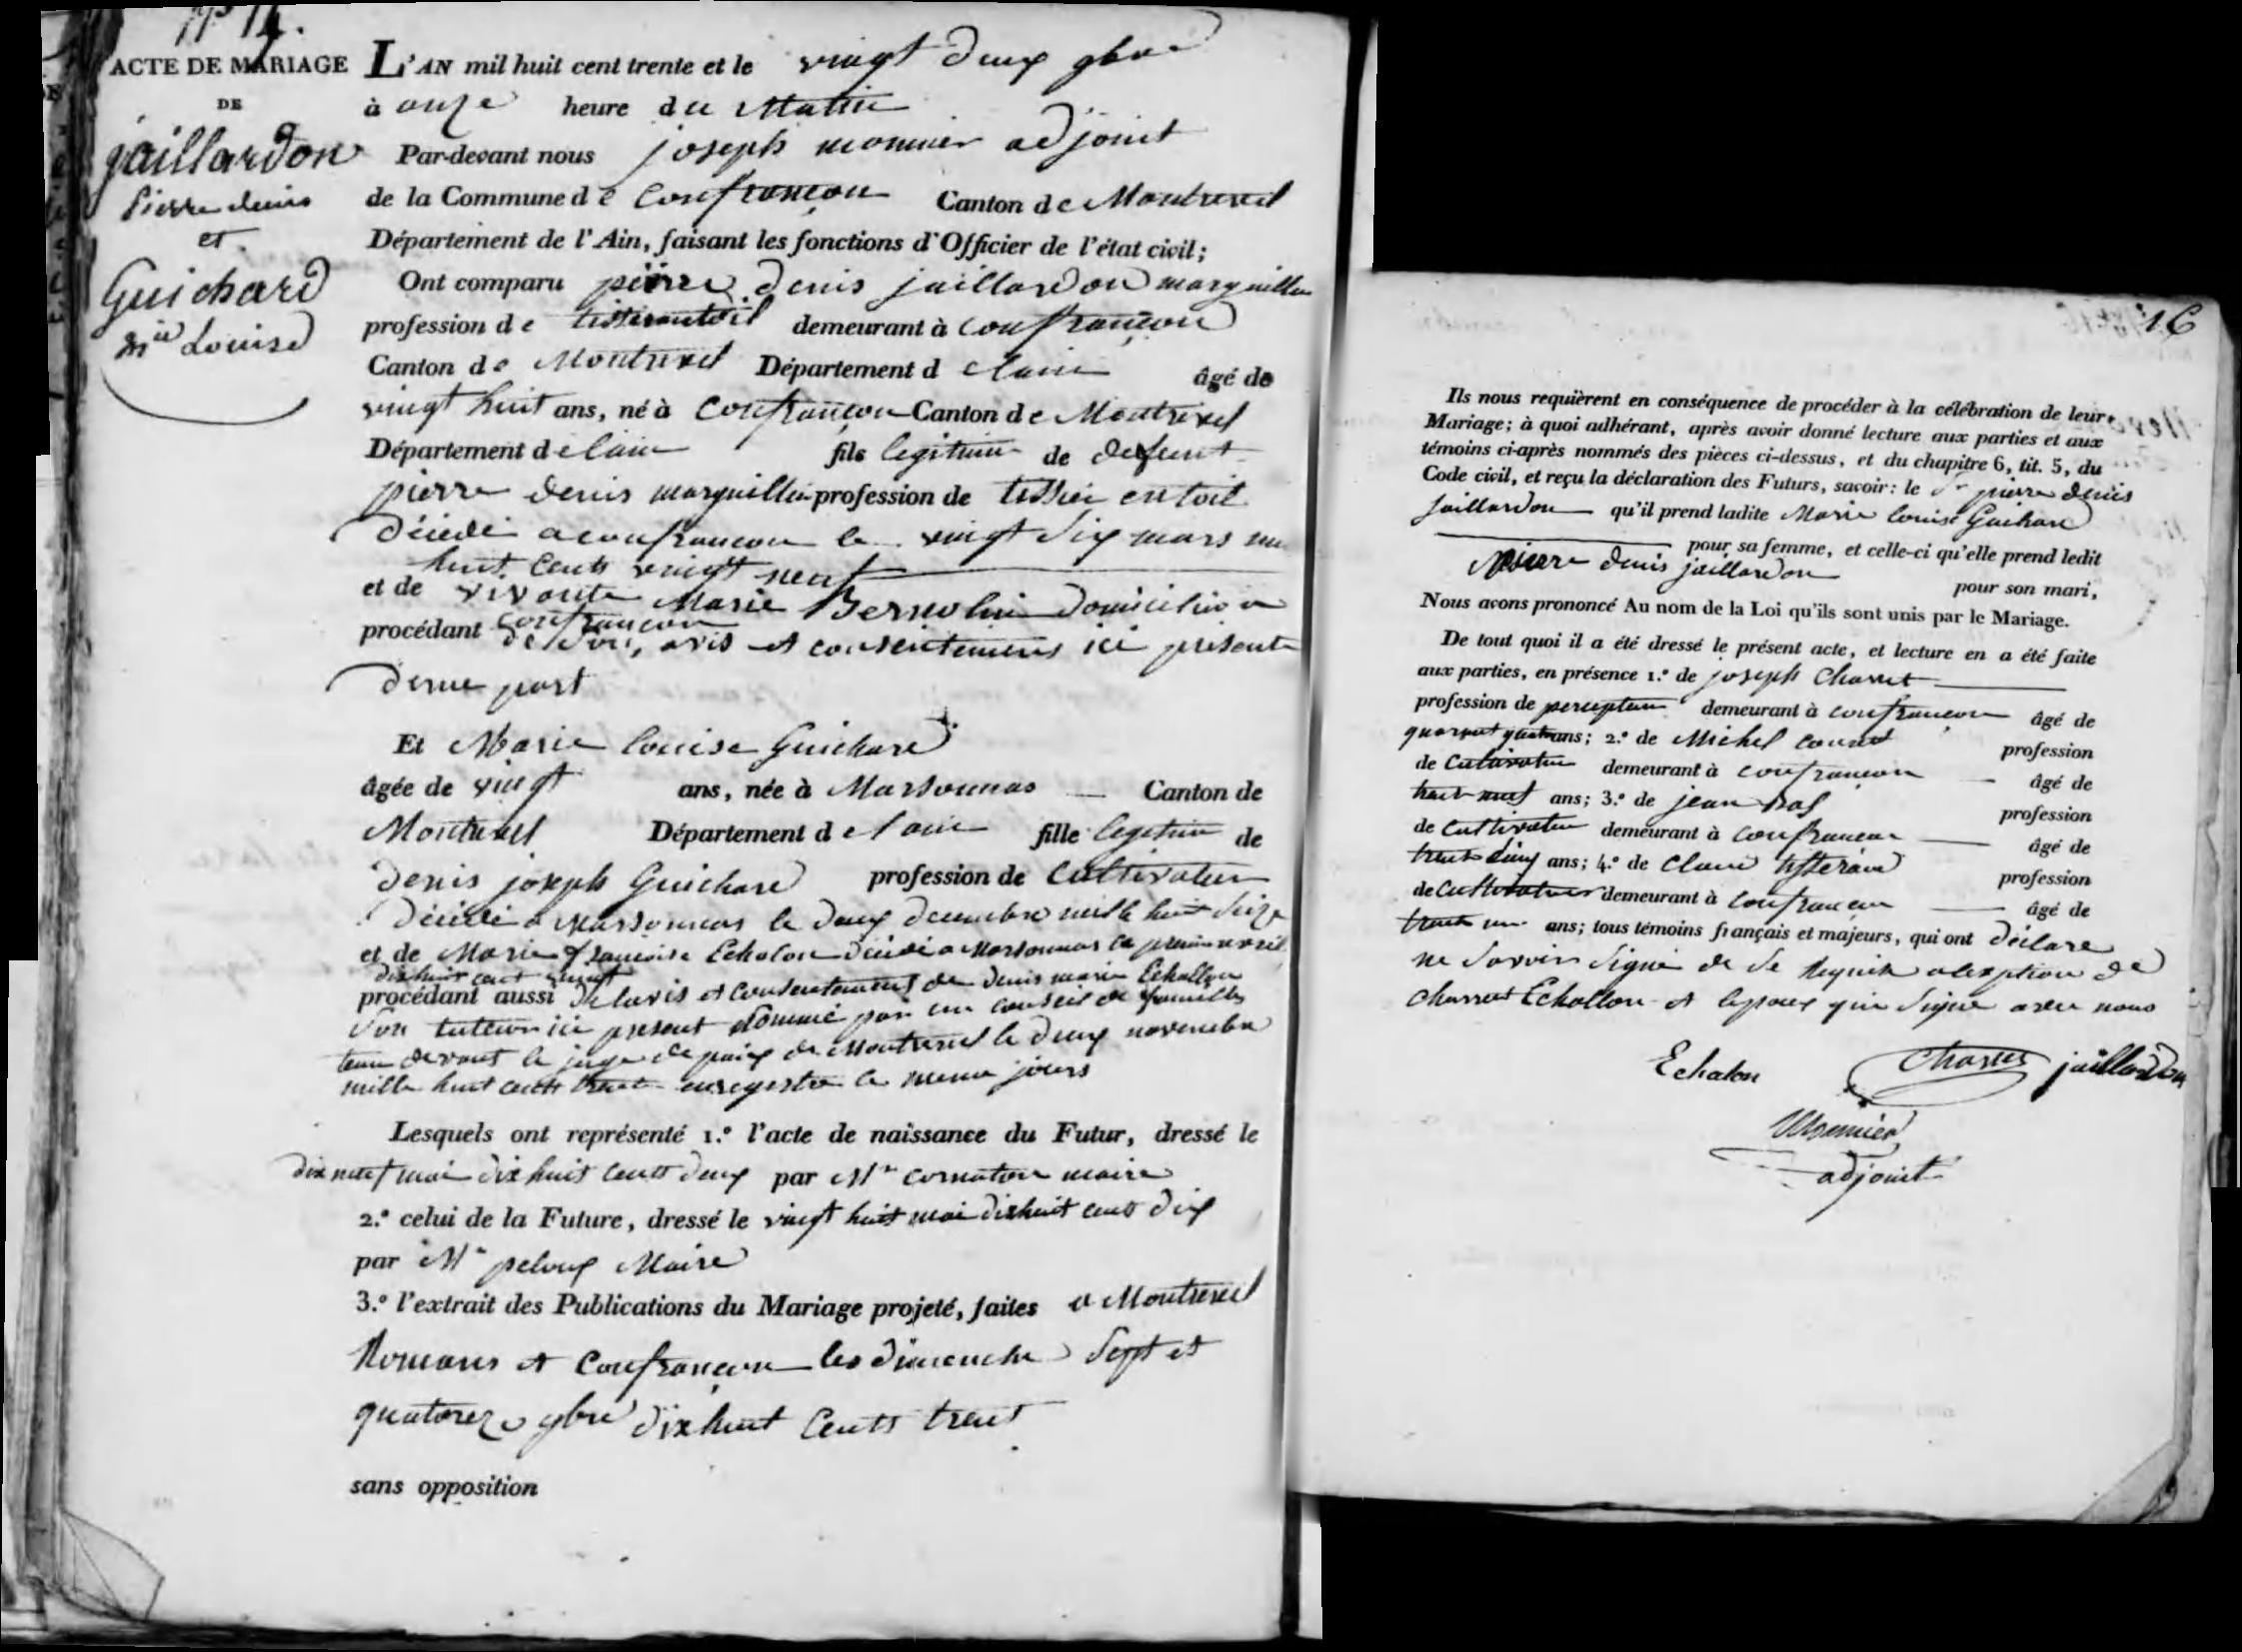 N° 14.
ACTE DE MARIAGE
DE
jaillardon
Pierre denis
et
Guichard
Mie Louise
L'AN mil huit cent trente et le vingt deux 9bre
à onze heure du Matin
Par-devant nous joseph monnier adjoint
de la Commune de Confrançon Canton de Montrevel
Département de l'Ain, faisant les fonctions d'Officier de l'état civil;
Ont comparu pierre denis jaillardon marguillier
profession de demeurant à confrançon
Canton de Montrevel Département d elain âgé de
vingt huit ans, né à Confrançon Canton de Montrevel
Département d elain fils legitime de defunt
pierre denis marguillier profession de tissier en toil
décédé a confrancon le vingt six mars mil
huit cents vingt neuf
et de vivante Marie Bernolin domicilié a
confrancon
procédant de son, avis et consentement ici présente
dune part
Et Marie louise Guichard
âgée de vingt ans, née à Marsonnas Canton de
Montrevel Département d elain fille legitime de
denis joseph Guichard profession de cultivateur
décédé a Marsonnas le deux decembre mille huit seize
et de Marie françoise Echalon décédé a Marsonnas le premier avril
dix huit cent vingt
procédant aussi de lavis et consentement de denis marie Echallon
son tuteur ici présent nommé par un conseil de famille
tenu devant le juge de paix de Montrevel le deux novembre
mille huit cents trente enregistre le meme jours
Lesquels ont représenté 1.° l'acte de naissance du Futur, dressé le
dix neuf mai dix huit cents deux par Mr cornaton maire
2.° celui de la Future, dressé le vingt huit mai dixhuit cents dix
par Mr peloux Maire
3.° l'extrait des Publications du Mariage projeté, faites a Montrevel
Romans et Confrançon les dimenche sept et
quatorze 9bre dixhuit cents trent
sans opposition
16
Ils nous requièrent en conséquence de procéder à la célébration de leur
Mariage; à quoi adhérant, après avoir donné lecture aux parties et aux
témoins ci-après nommés des pièces ci-dessus, et du chapitre 6, tit. 5, du
Code civil, et reçu la déclaration des Futurs, savoir: le Sr pierre denis
jaillardon qu'il prend ladite Marie louise Guichard
pour sa femme, et celle-ci qu'elle prend ledit
pierre denis jaillardon pour son mari,
Nous avons prononcé Au nom de la Loi qu'ils sont unis par le Mariage.
De tout quoi il a été dressé le présent acte, et lecture en a été faite
aux parties, en présence 1.° de joseph Charvet
profession de percepteur demeurant à confrançon âgé de
quarant quatre ans; 2.° de Michel profession
de Cultivateur demeurant à confrançon âgé de
trent neuf ans; 3.° de jean profession
de cultivateur demeurant à confrancon âgé de
trent cinq ans; 4.° de Claude profession
de Cultivateur demeurant à Confrancon âgé de
trent un ans; tous témoins français et majeurs, qui ont déclare
ne savoir signé de se requis alexption de
charvet Echallon et lepoux qui signé avec nous
Echalon Charvet jaillardon
Monnier
adjoint